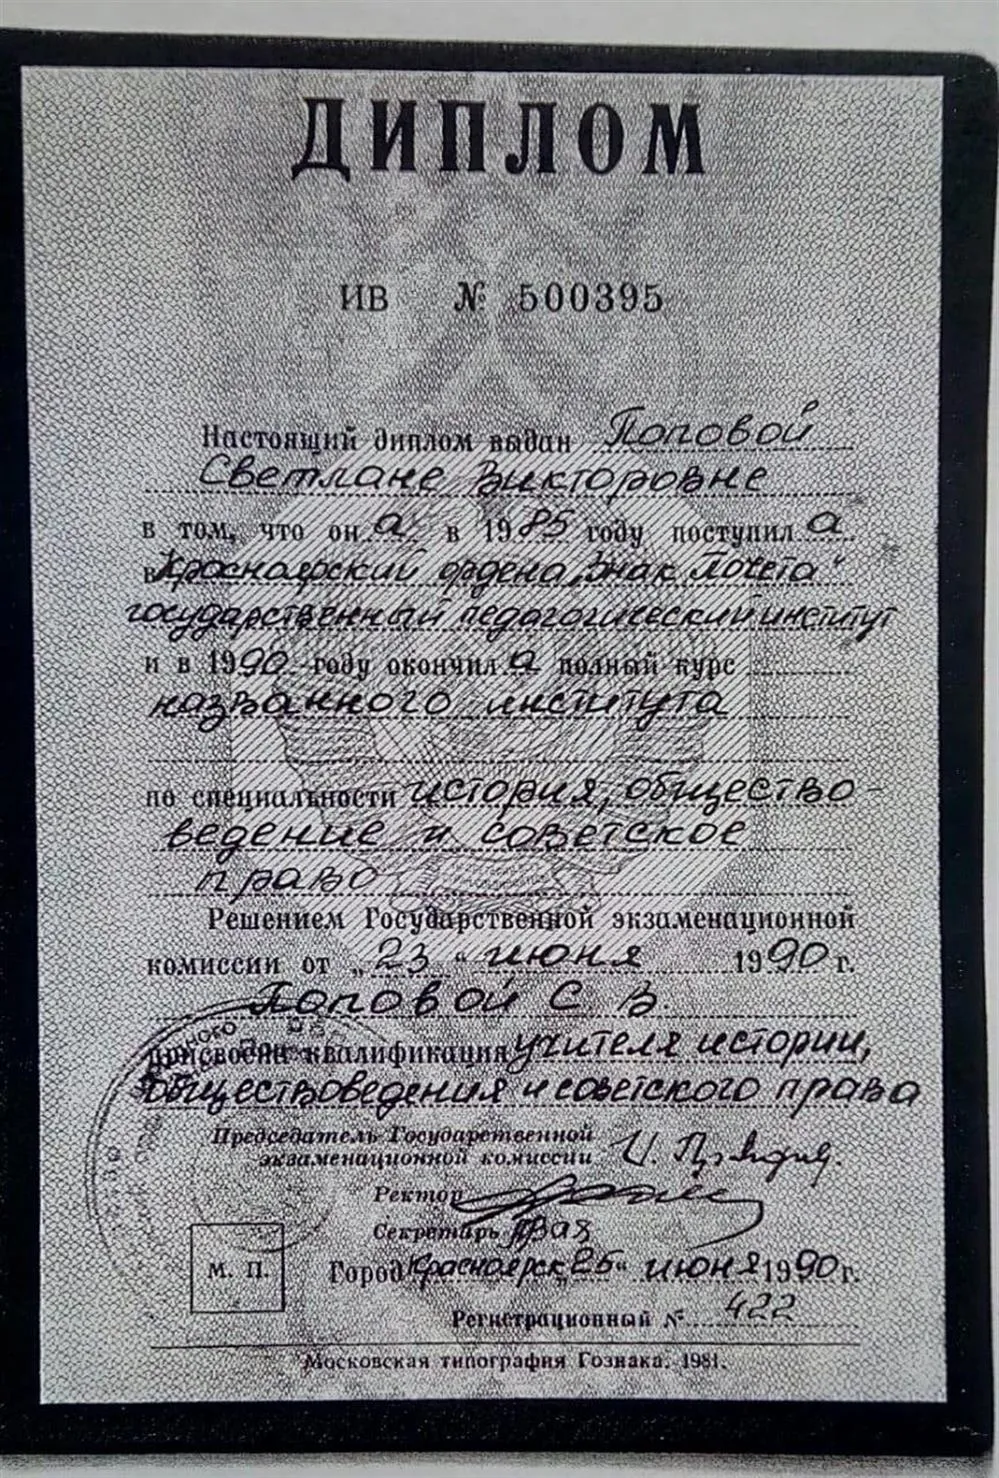 ДИПЛОМ
ИВ № 500395
Настоящий диплом выдан Поповой
Светлане Викторовне
в том, что он а в 1985 году поступил а
в Красноярский ордена „Знак Почета"
государственный педагогический институт
и в 1990 году окончил а полный курс
названного института
по специальности история, общество-
ведение и советское
право
Решением Государственной экзаменационной
комиссии от „23" июня 1990 г.
Поповой С В.
присвоена квалификация учителя истории,
обществоведения и советского права
Председатель Государственной
экзаменационной комиссии
Ректор
Секретарь
М. П.
Город Красноярск „25" июня 1990 г.
Регистрационный № 422
Московская типография Гознака. 1981.